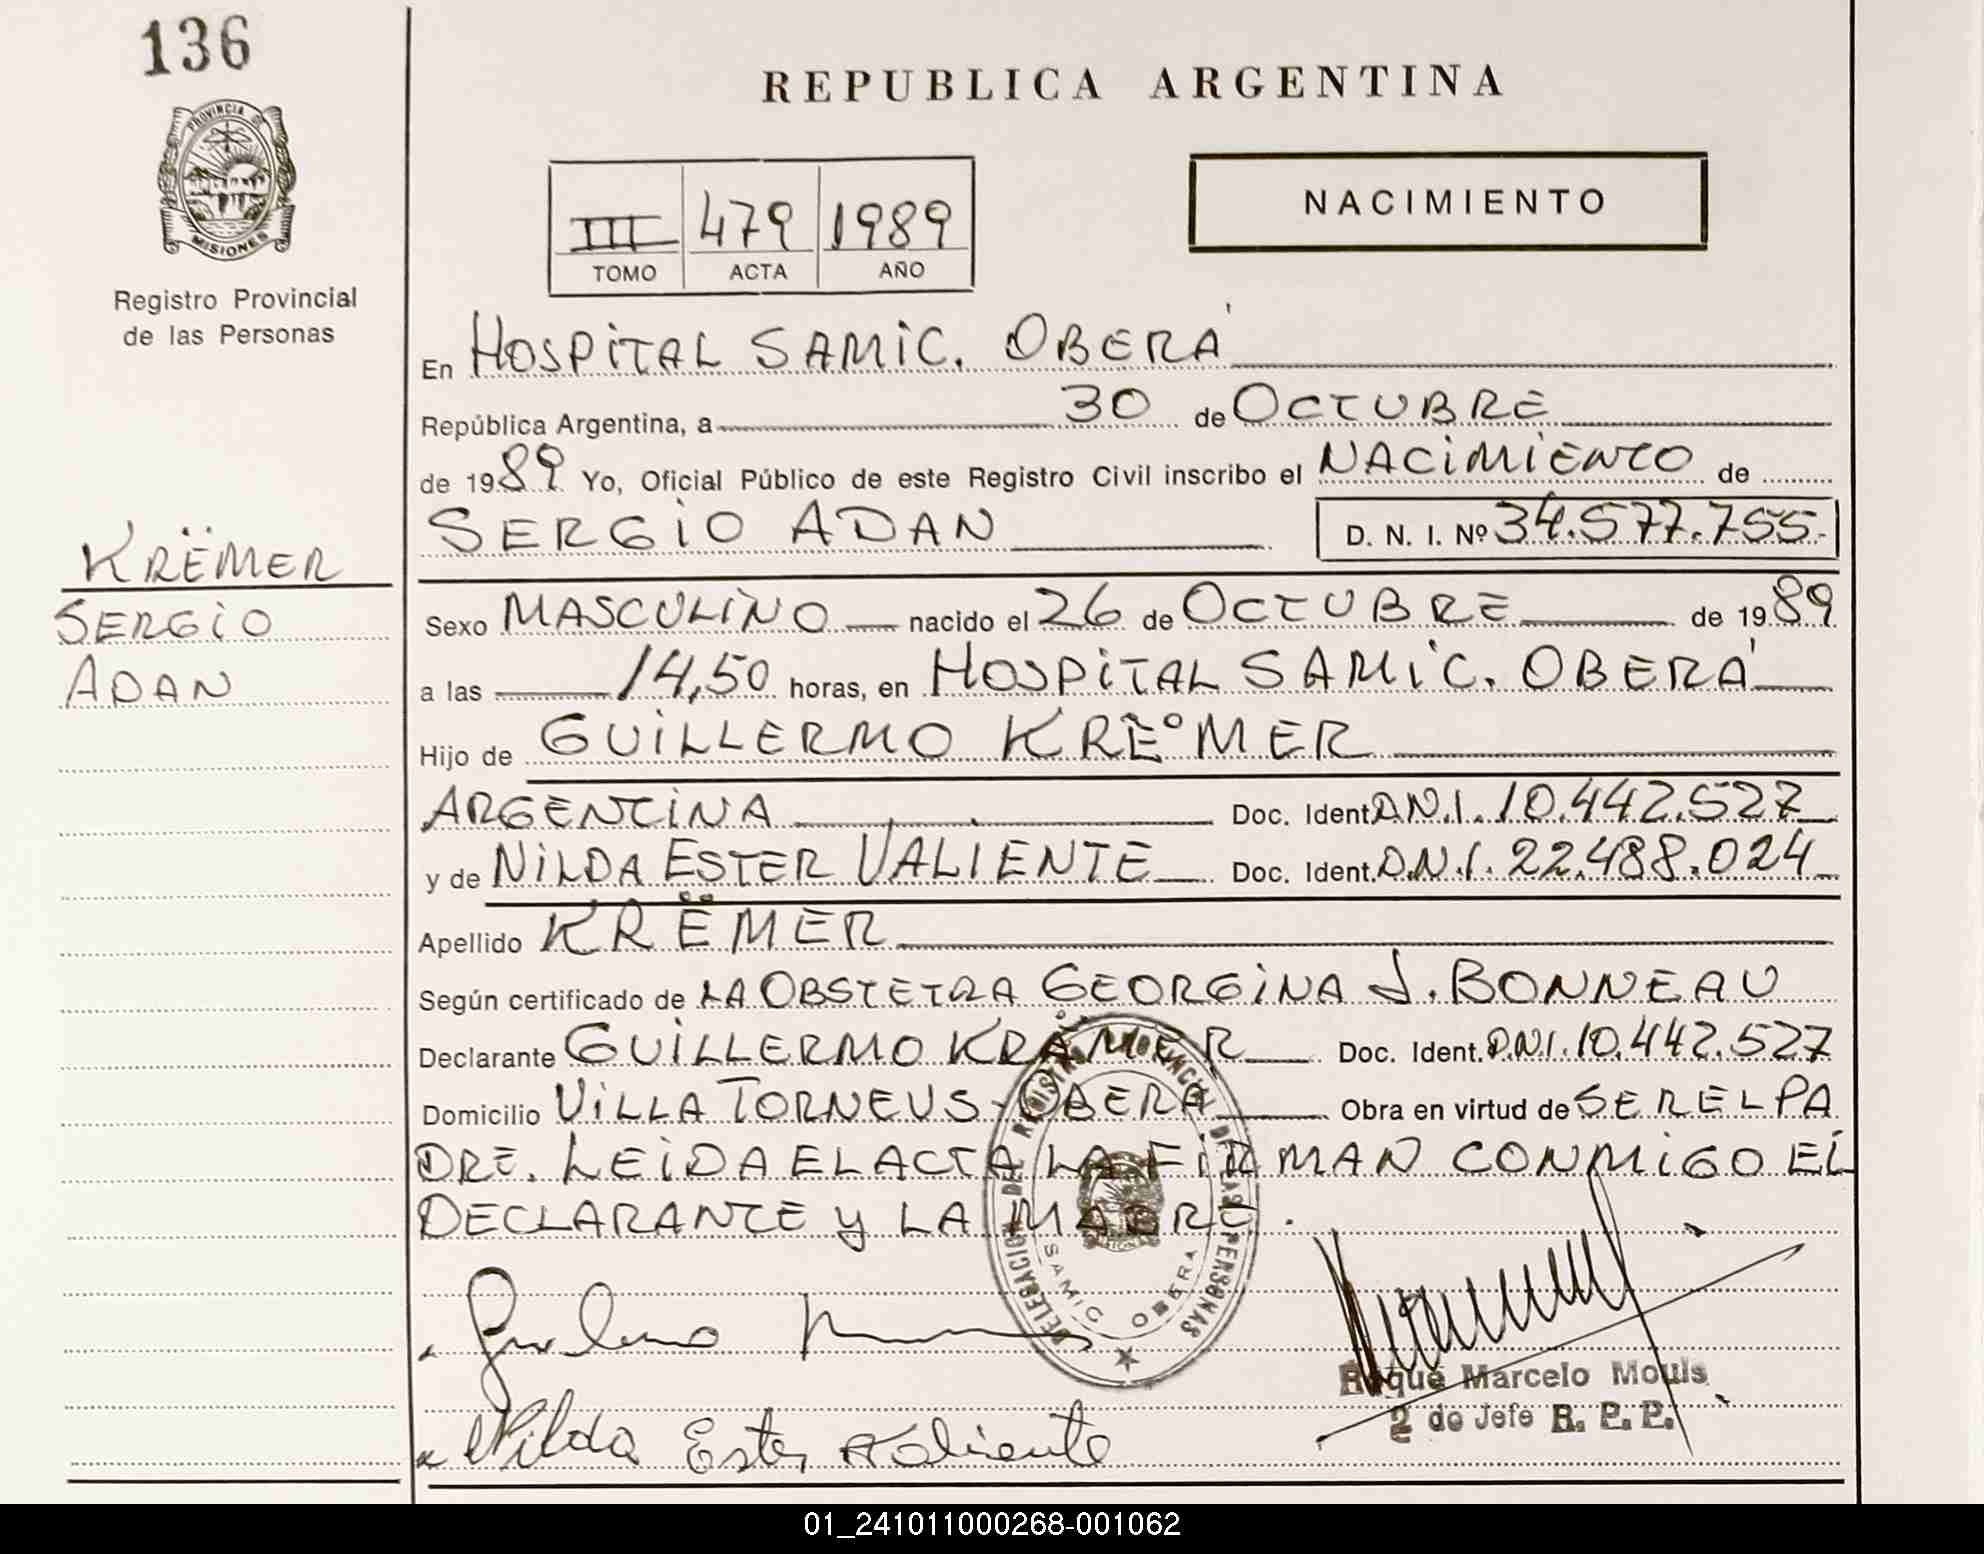 136
PROVINCIA DE
MISIONES
Registro Provincial
de las Personas
REPUBLICA ARGENTINA
NACIMIENTO
III 479 1989
TOMO ACTA AÑO
En HOSPITAL SAMIC. OBERÁ
República Argentina, a 30 de OCTUBRE
de 1989 Yo, Oficial Público de este Registro Civil inscribo el NACIMIENTO de
SERGIO ADAN D. N. I. Nº 34.577.755.
KRËMER
SERGIO
ADAN
Sexo MASCULINO nacido el 26 de OCTUBRE de 1989
a las 14,50 horas, en HOSPITAL SAMIC. OBERÁ
Hijo de GUILLERMO KRË°MER
ARGENTINA Doc. Ident. D.N.I. 10.442.527
y de NILDA ESTER VALIENTE Doc. Ident. D.N.I. 22.488.024
Apellido KRËMER
Según certificado de LA OBSTETRA GEORGINA J. BONNEAU
Declarante GUILLERMO KRÄMER Doc. Ident. DNI. 10.442.527
Domicilio VILLA TORNEUS - OBERA Obra en virtud de SER EL PA
DRE. LEIDA EL ACTA LA FIRMAN CONMIGO EL
DECLARANTE Y LA MADRE.
DELEGACION DEL REGISTRO PROVINCIAL DE LAS PERSONAS
SAMIC OBERA
Nilda Ester Valiente
Roque Marcelo Mouls
2 do Jefe R. P. P.
01_241011000268-001062